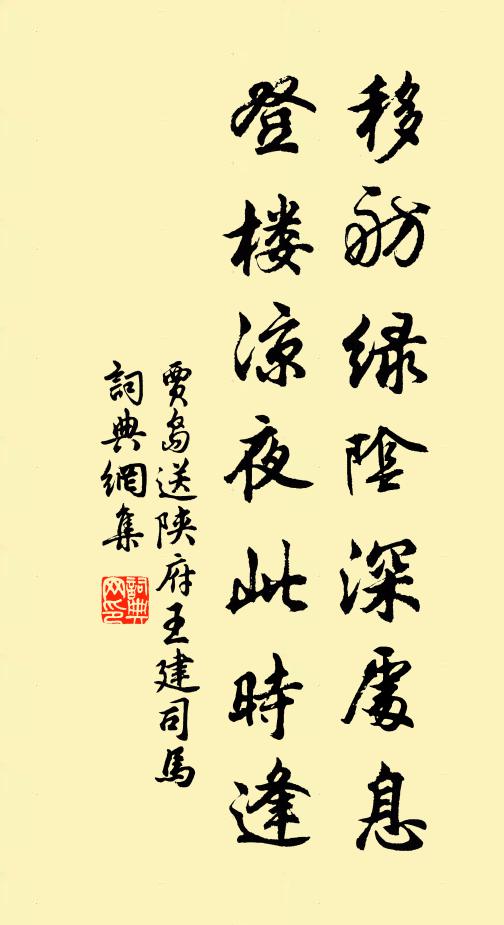 移舫绿陰深處息
登楼凉夜此時逢
賈島送陝府王建司馬
詞典網集
詞典网印